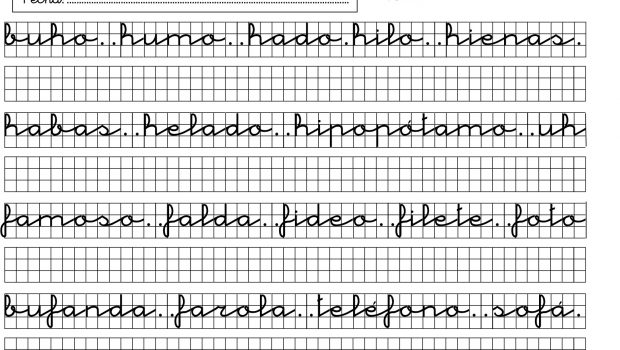 Fecha:
buho..humo..hado.hilo..hienas.
habas..helado..hipopótamo..uh
famoso..falda..fideo..filete..foto
bufanda..farola..teléfono..sofá.